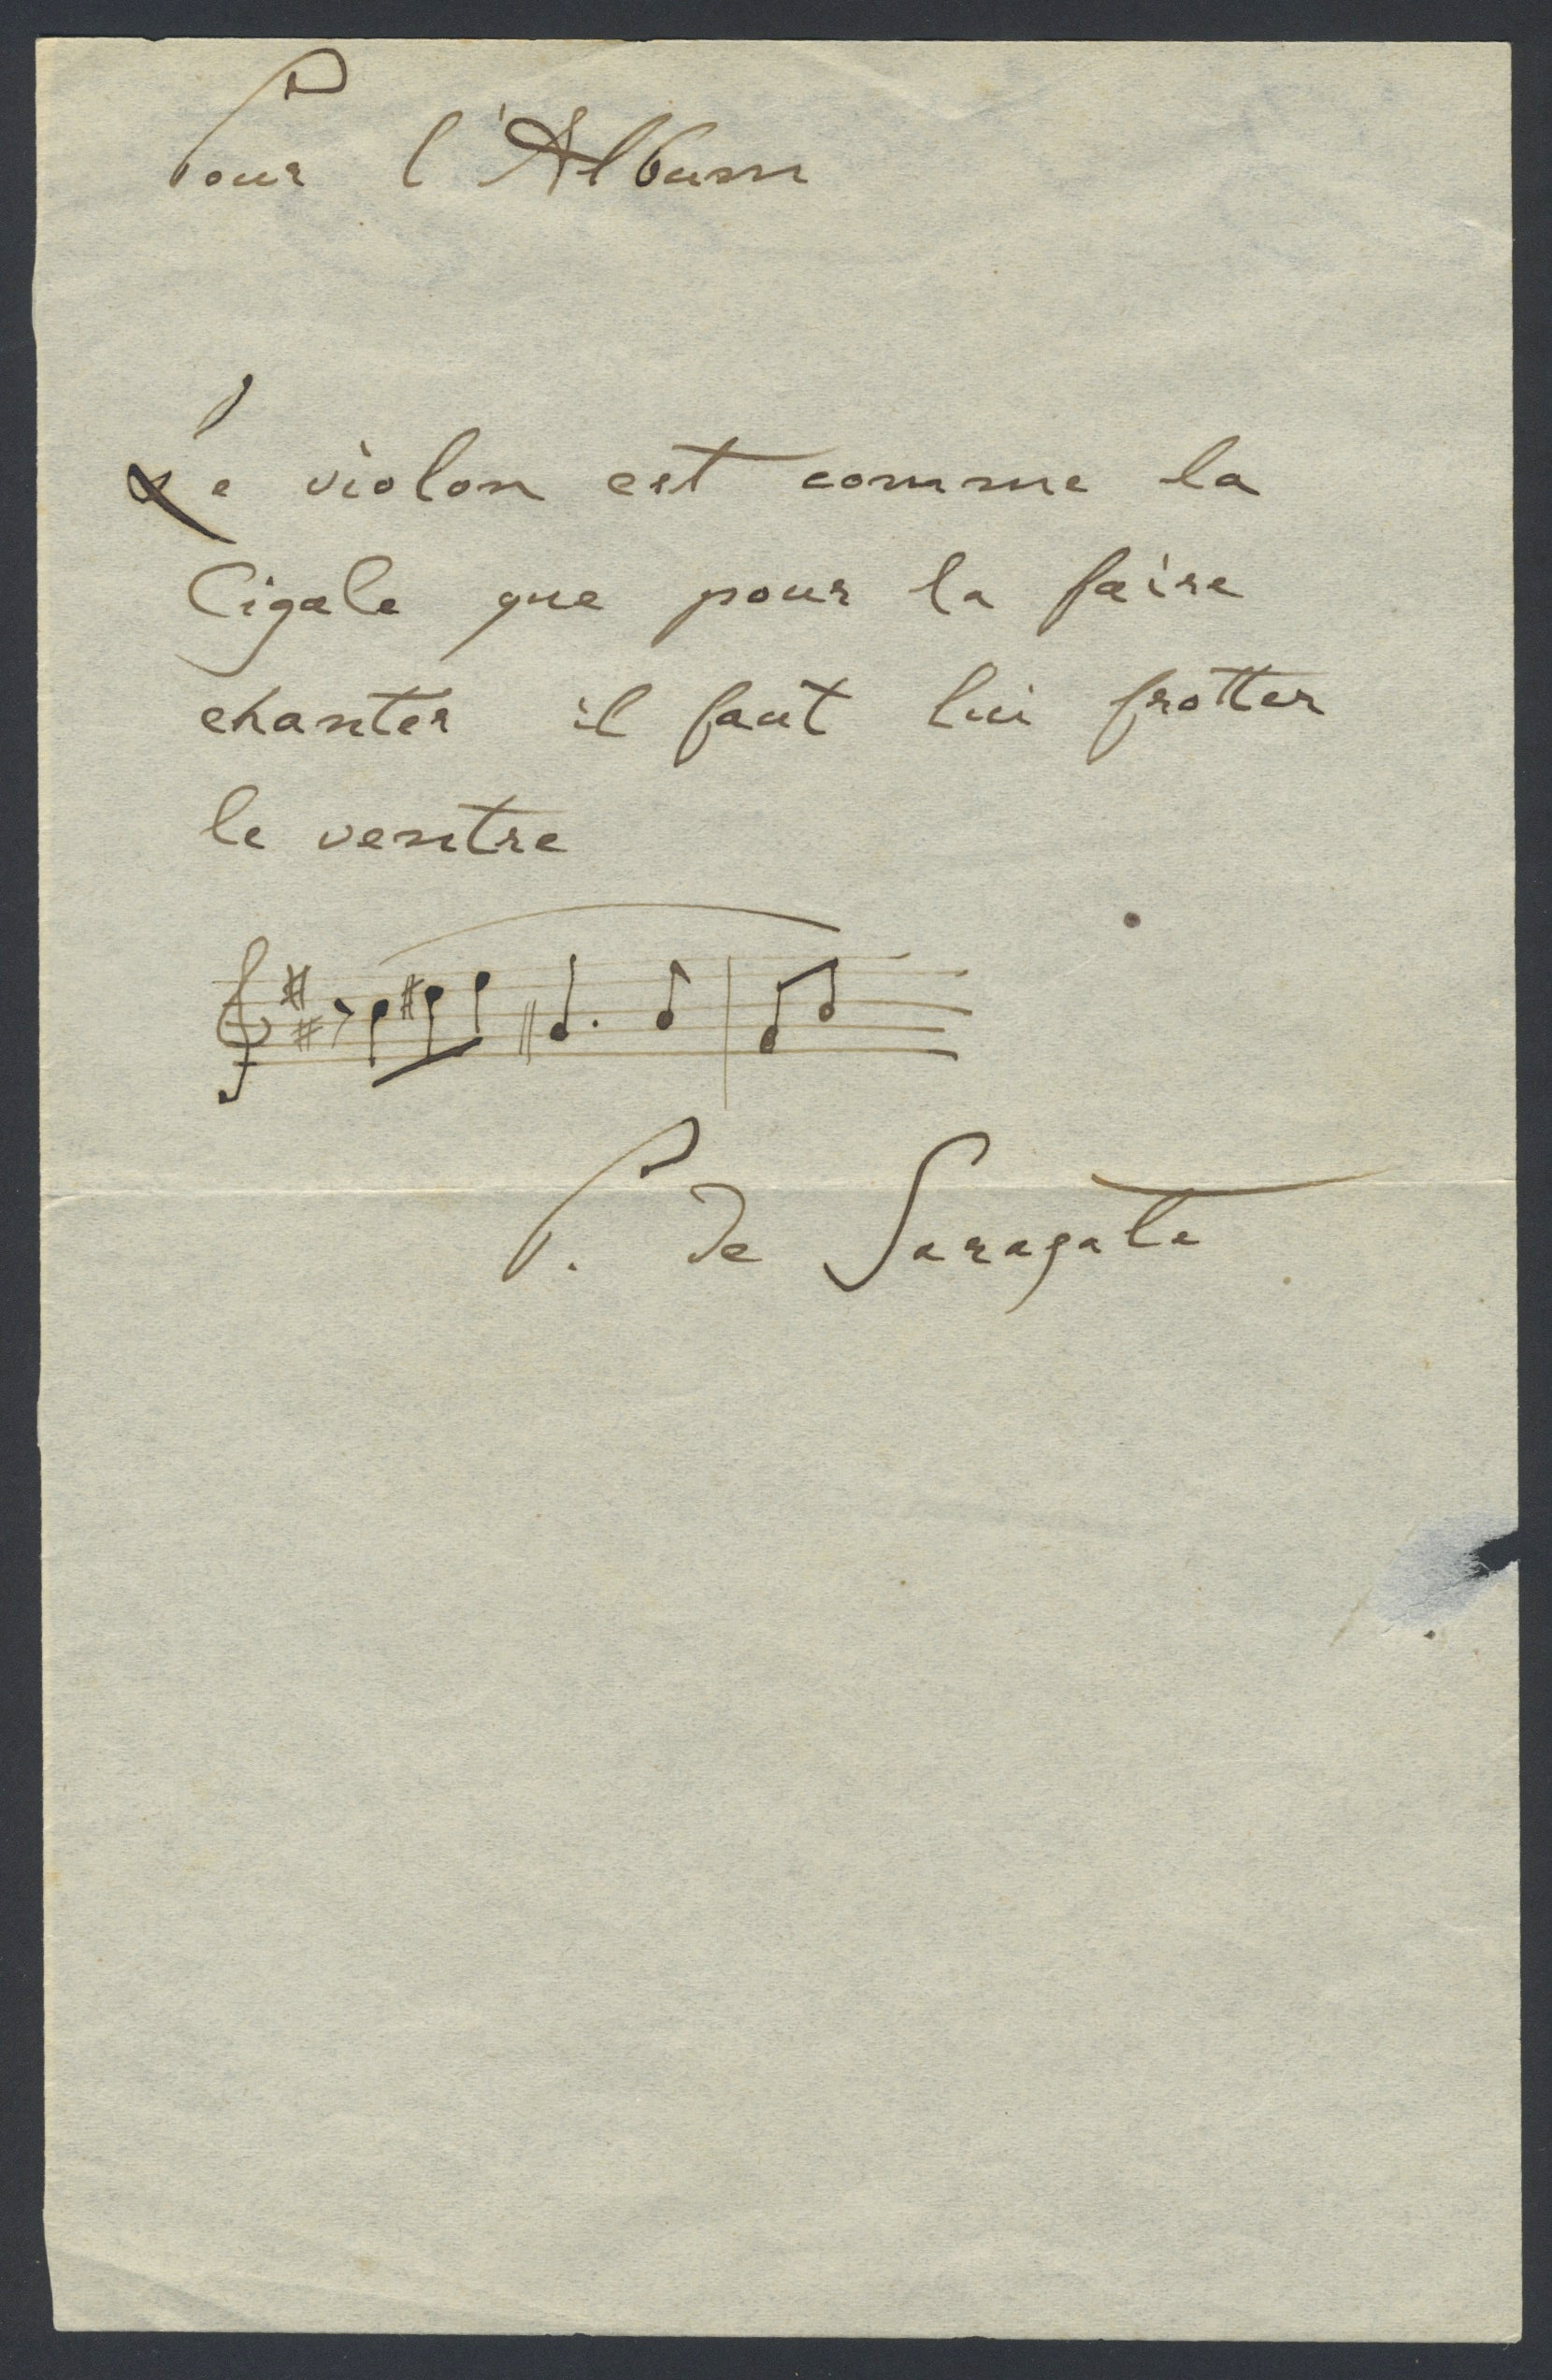 Pour l'Album
Le violon est comme la
Cigale que pour la faire
chanter il faut lui frotter
le ventre
P. de Sarasate